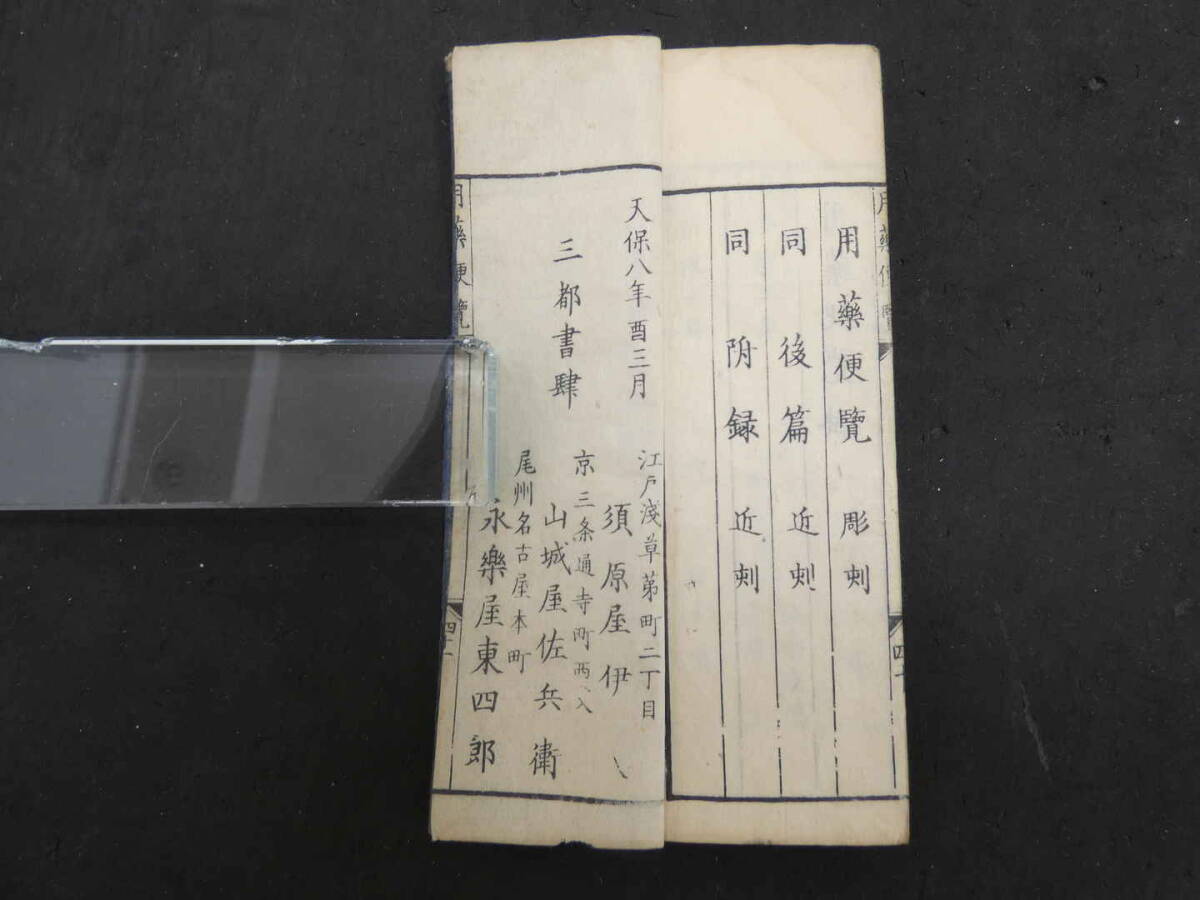 用藥便覽 彫刺
同後篇 近刺
同附録 近刺
天保八年酉三月
三都書肆
江戸淺草茅町二丁目
須原屋伊
京三条通寺町西入
山城屋佐兵衛
尾州名古屋本町
永樂屋東四郎
用藥便覽
四十